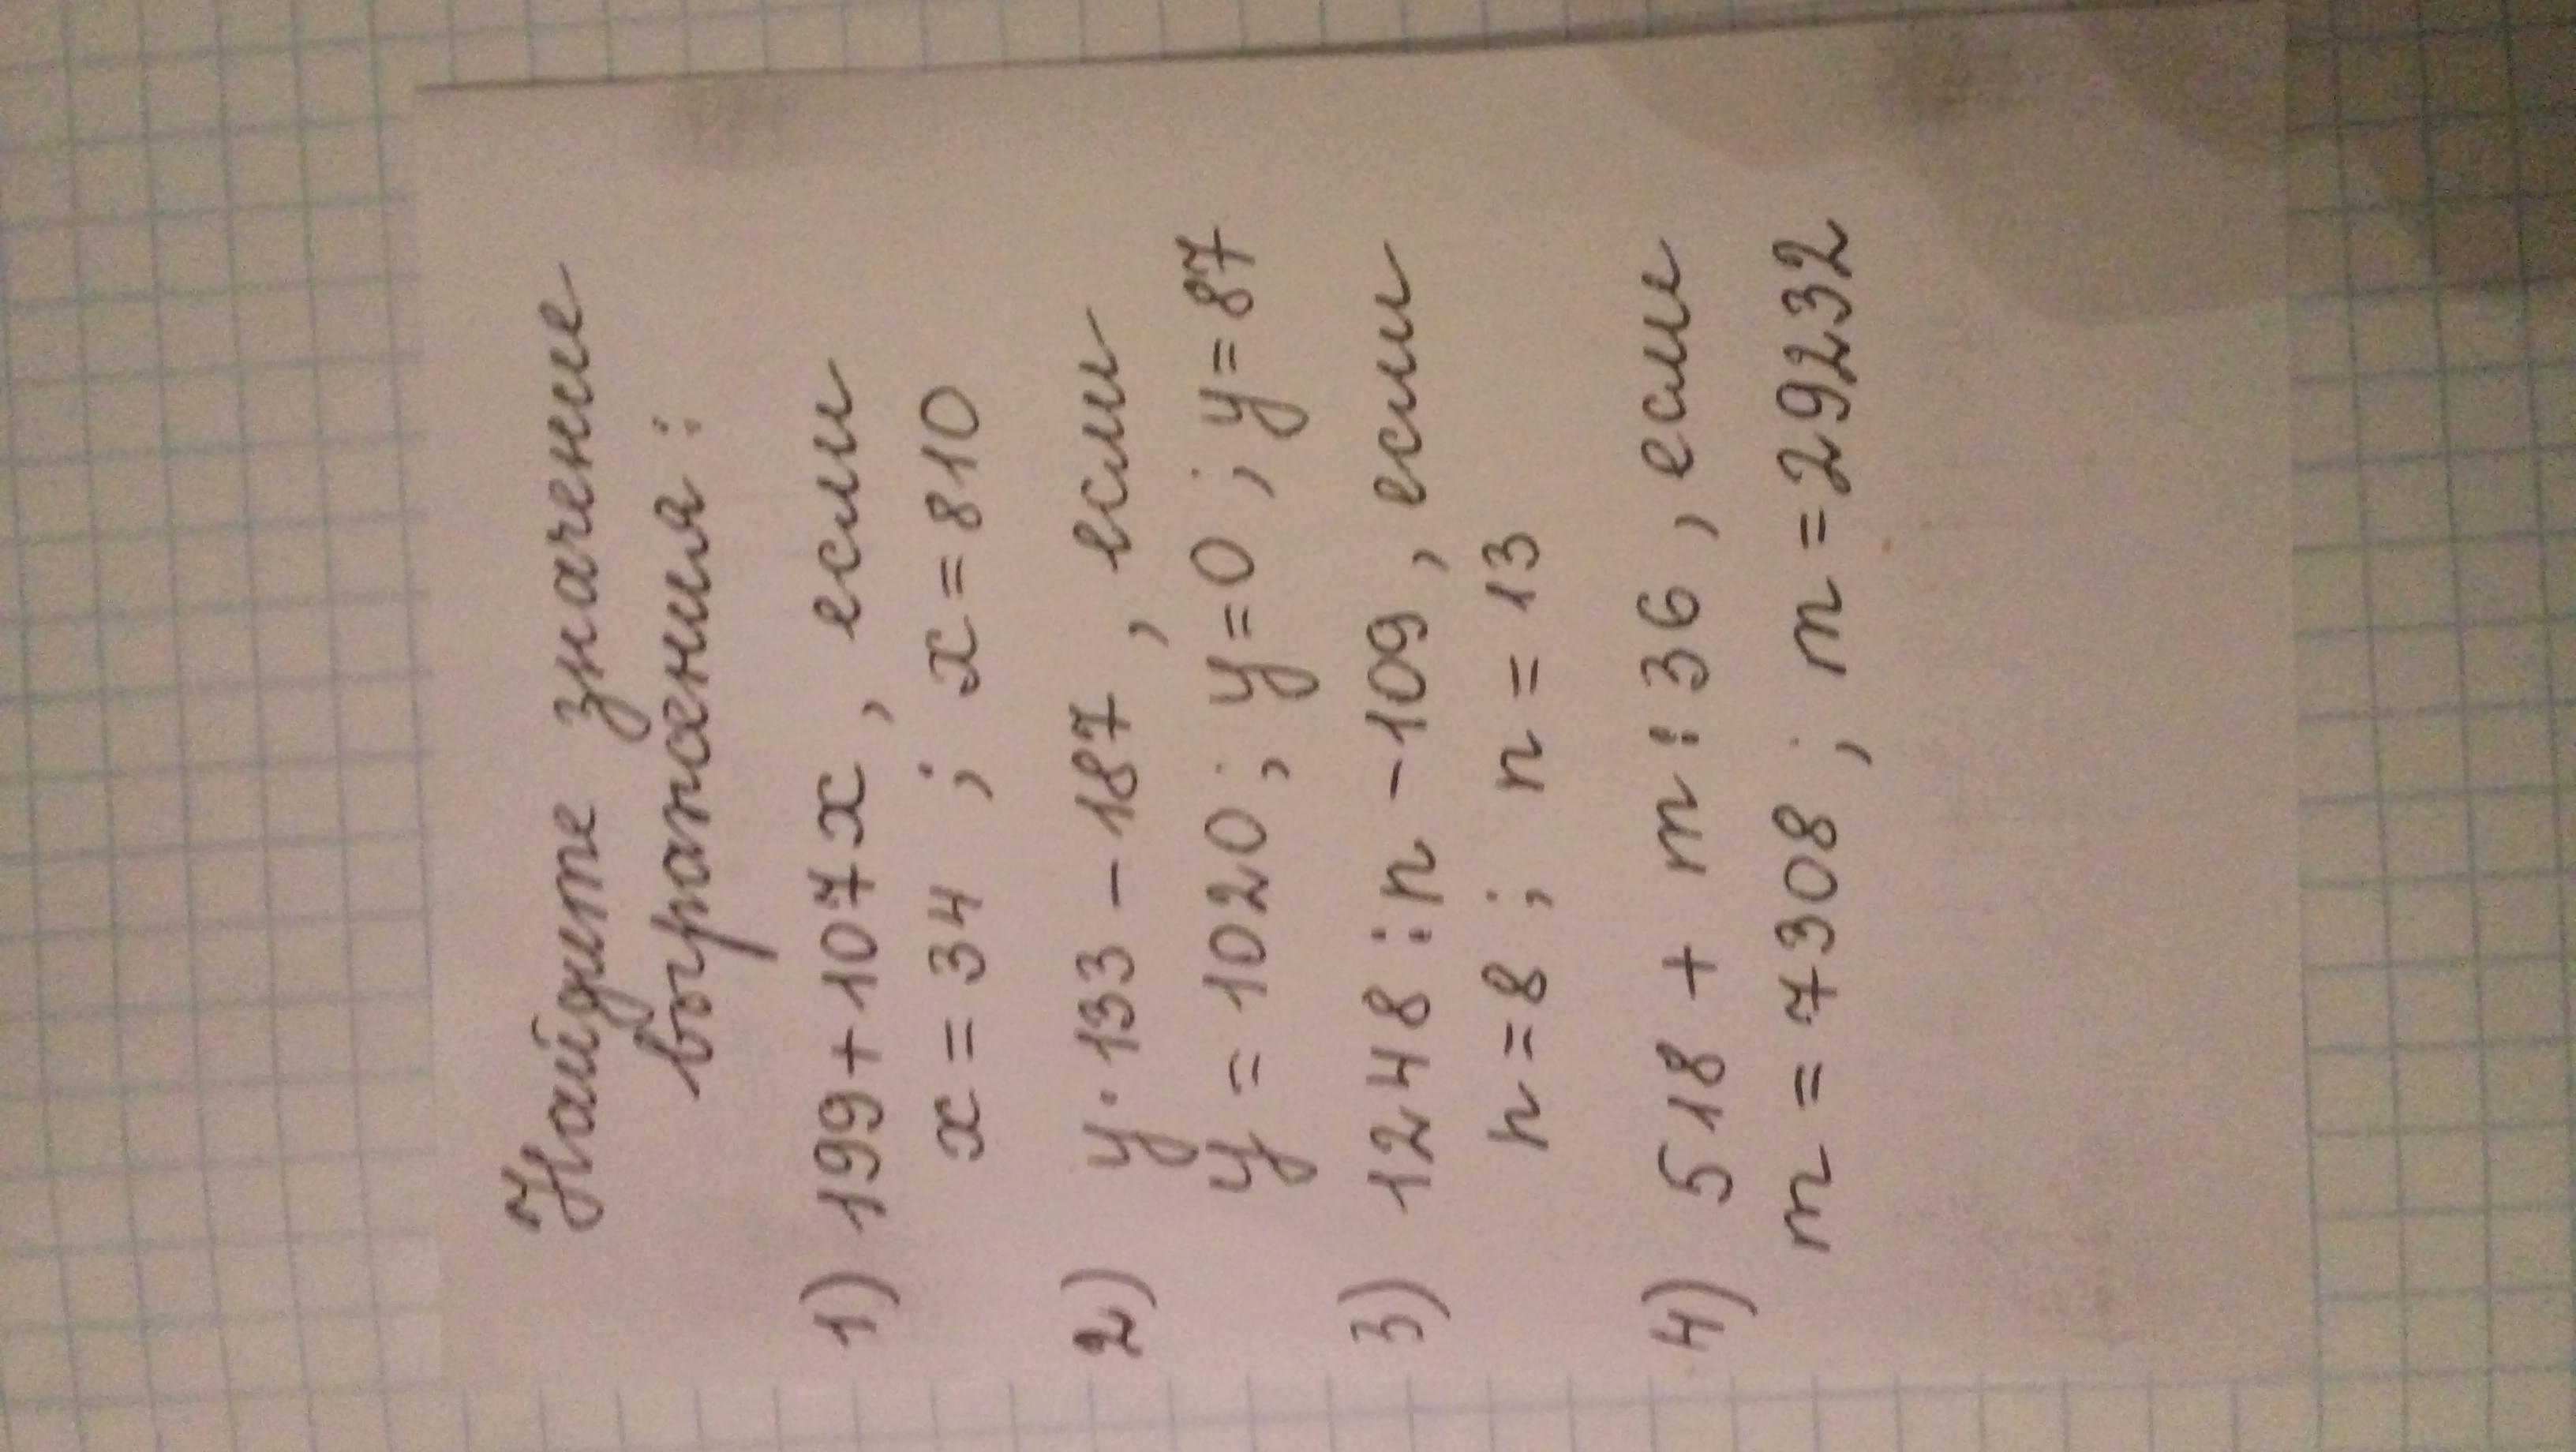 Найдите значение
выражения:
1) 199+107x, если
x = 34 ; x = 810
2) y·133 - 187, если
y = 1020; y=0; y=87
3) 1248:n -109, если
n=8; n = 13
4) 518 + m:36, если
m = 7308; m=29232